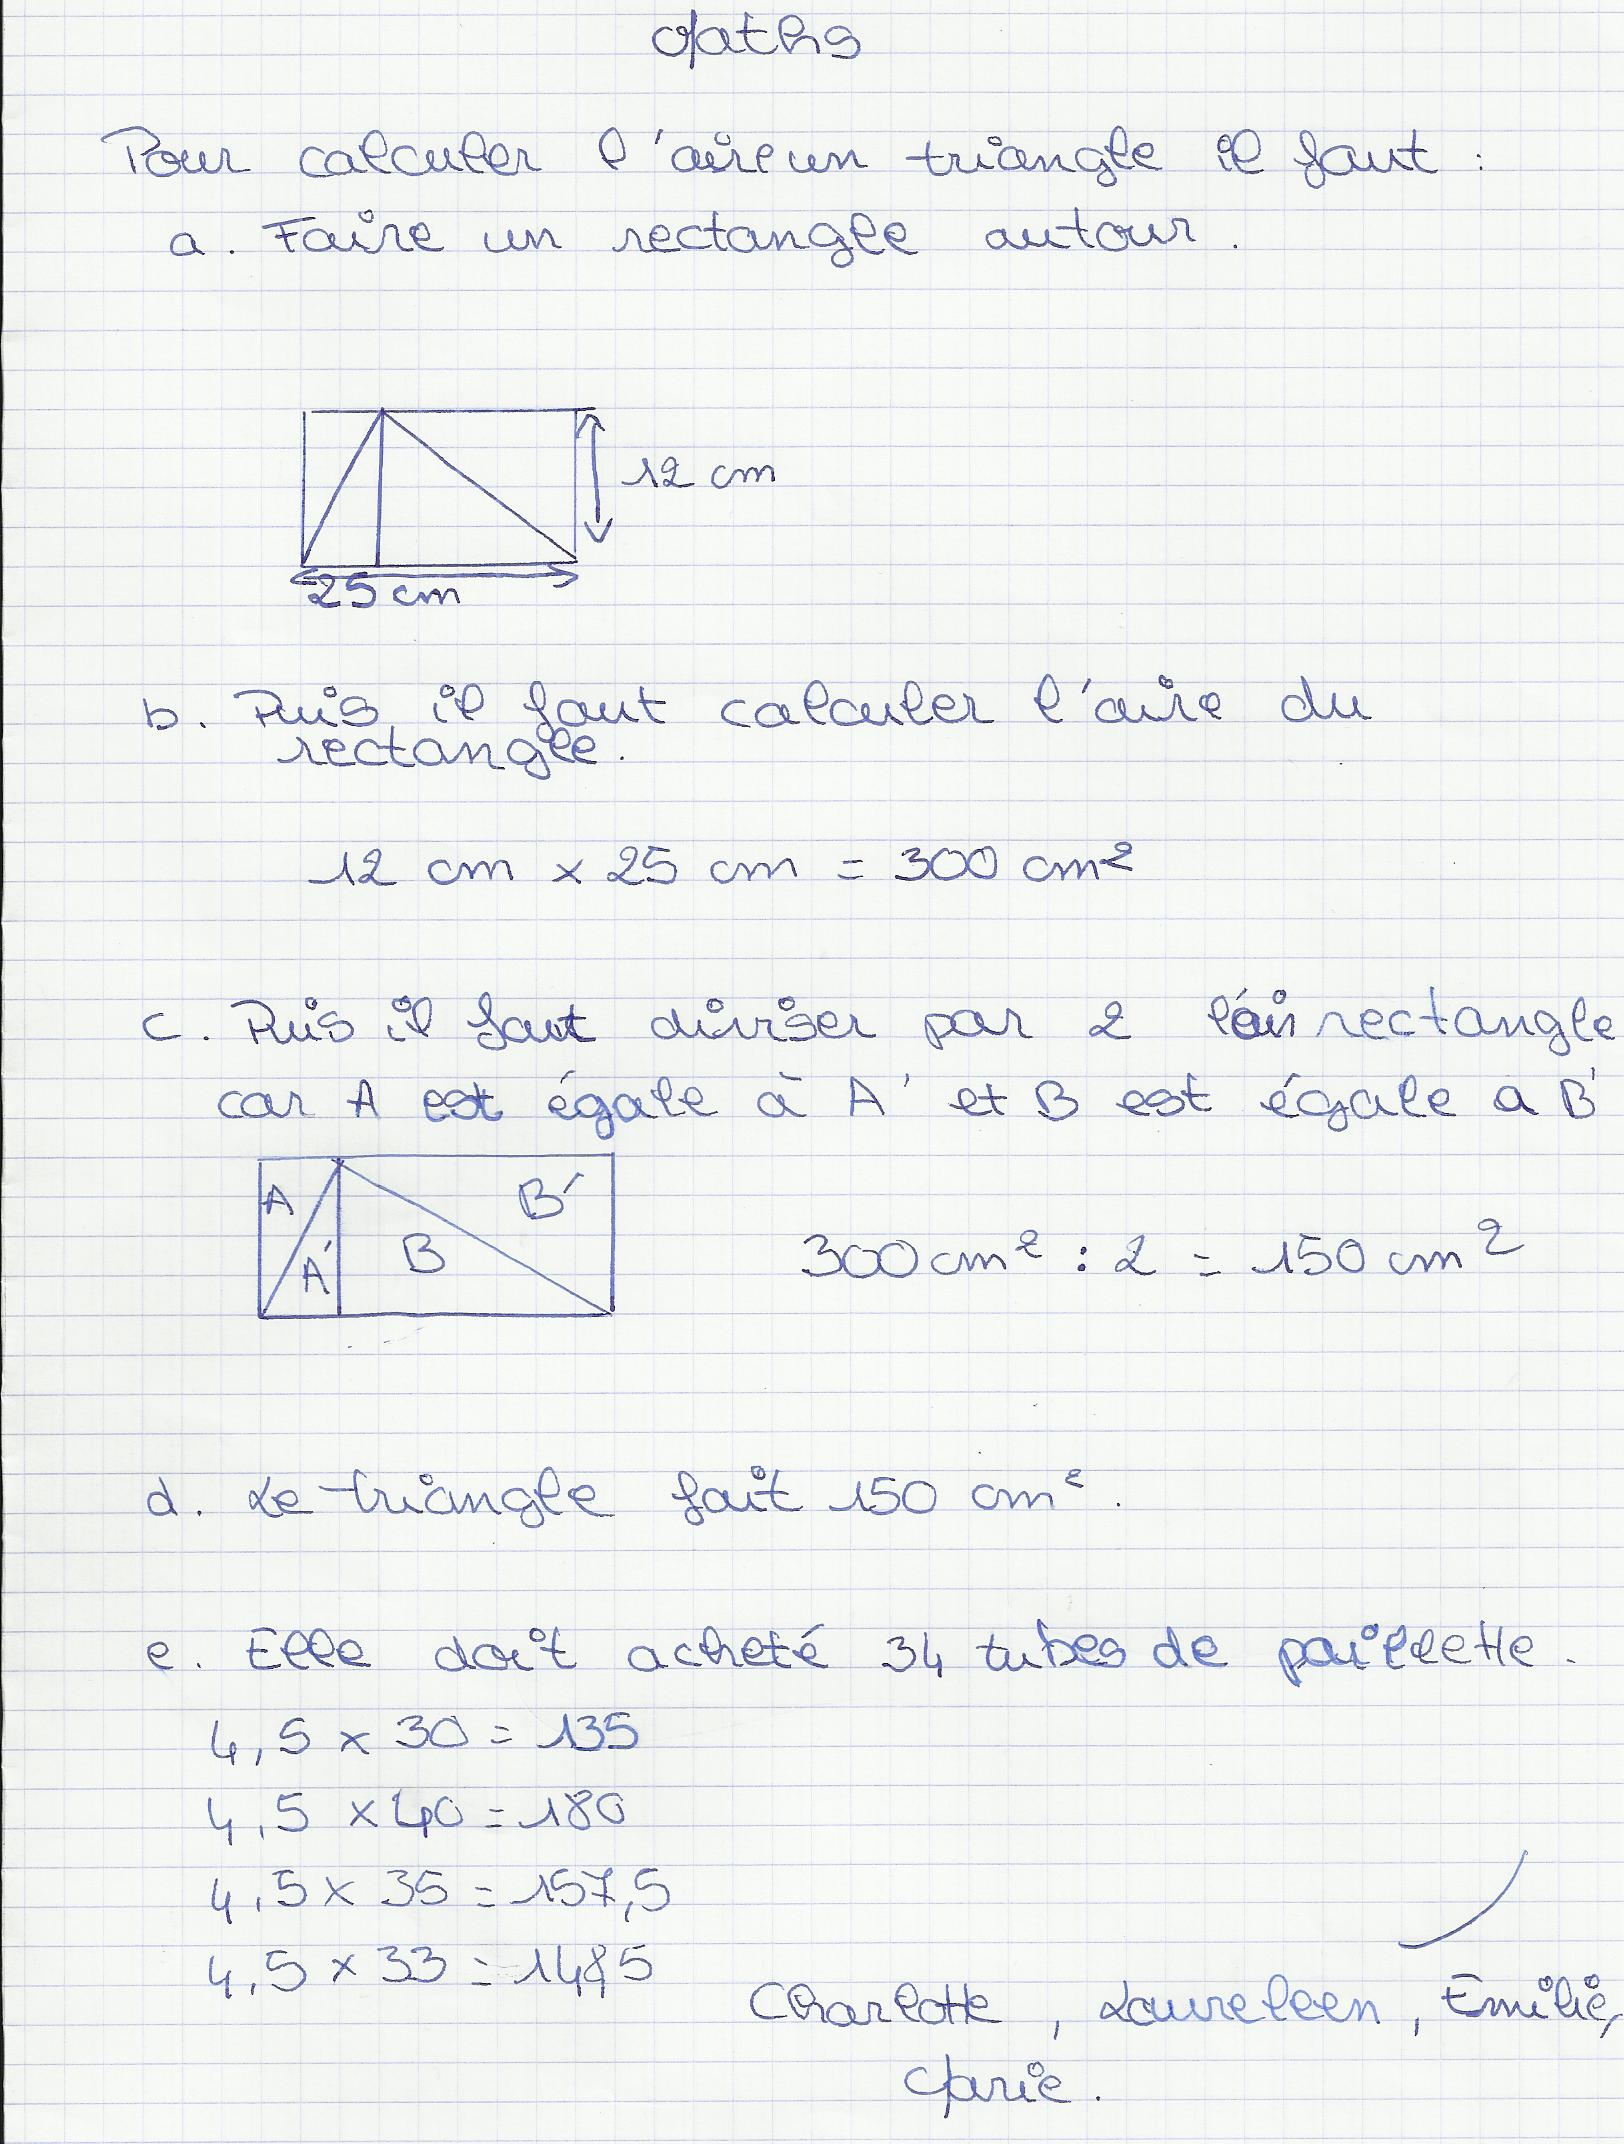 Maths
Pour calculer l'aire un triangle il faut :
a. Faire un rectangle autour.
12 cm
25 cm
b. Puis il faut calculer l'aire du
rectangle.
12 cm x 25 cm = 300 cm²
c. Puis il faut diviser par 2 rectangle
car A est égale à A' et B est égale a B'
A B'
A' B
300 cm² : 2 = 150 cm²
d. Le triangle fait 150 cm².
e. Elle doit acheté 34 tubes de paillette.
4,5 x 30 = 135
4,5 x 40 = 180
4,5 x 35 = 157,5
4,5 x 33 = 148,5
Charlotte, Laureleen, Emilie,
Marie.